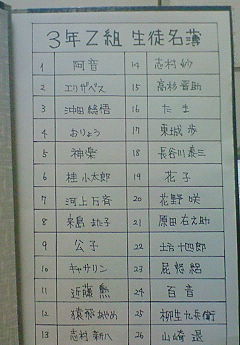 3年Z組 生徒名簿
1 阿音 14 志村妙
2 エリザベス 15 高杉晋助
3 沖田総悟 16 たま
4 おりょう 17 東城歩
5 神楽 18 長谷川泰三
6 桂小太郎 19 花子
7 河上万斉 20 花野咲
8 来島また子 21 原田右之助
9 公子 22 土方十四郎
10 キャサリン 23 屁怒絽
11 近藤勲 24 百音
12 猿飛あやめ 25 柳生九兵衛
13 志村新八 26 山崎退